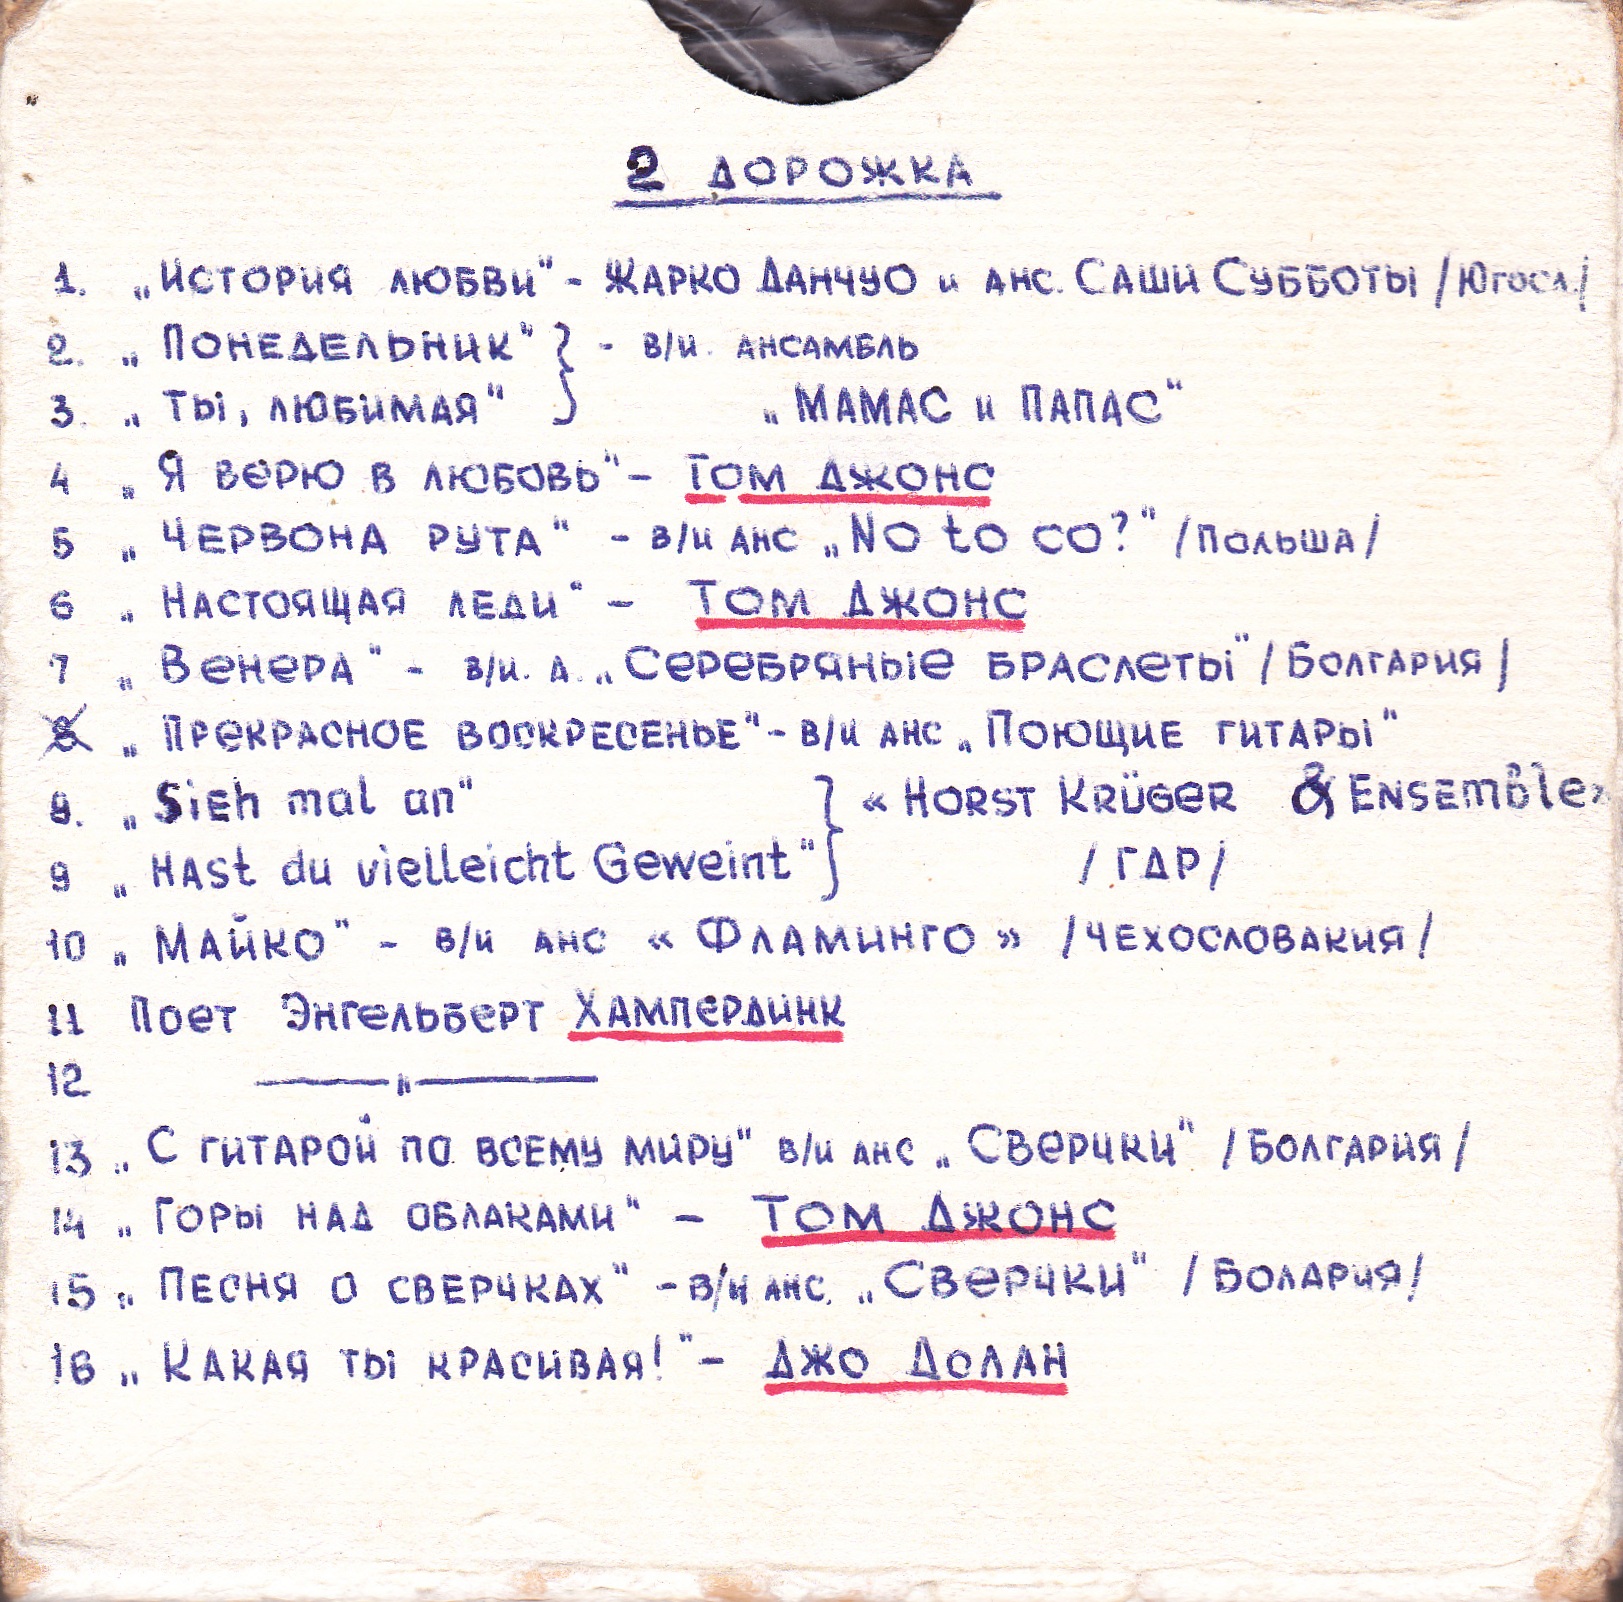 2 ДОРОЖКА
1. „История любви" - Жарко Данчуо и анс. Саши Субботы /Югосл/
2. „Понедельник" } - в/и. ансамбль
3. „Ты, любимая" } „Мамас и Папас"
4 „Я верю в любовь" - Том Джонс
5 „Червона рута" - в/и анс „No to co?" /Польша/
6 „Настоящая леди" - Том Джонс
7 „Венера" - в/и. а. „Серебряные браслеты" /Болгария/
8 „Прекрасное воскресенье" - в/и анс „Поющие гитары"
8. „Sieh mal an" } «Horst Krüger & Ensemble»
9 „Hast du vielleicht Geweint" } /ГДР/
10 „Майко" - в/и анс «Фламинго» /Чехословакия/
11 Поет Энгельберт Хампердинк
12 ———"———
13 „С гитарой по всему миру" в/и анс „Сверчки" /Болгария/
14 „Горы над облаками" - Том Джонс
15 „Песня о сверчках" - в/и анс. „Сверчки" /Болария/
16 „Какая ты красивая!" - Джо Долан